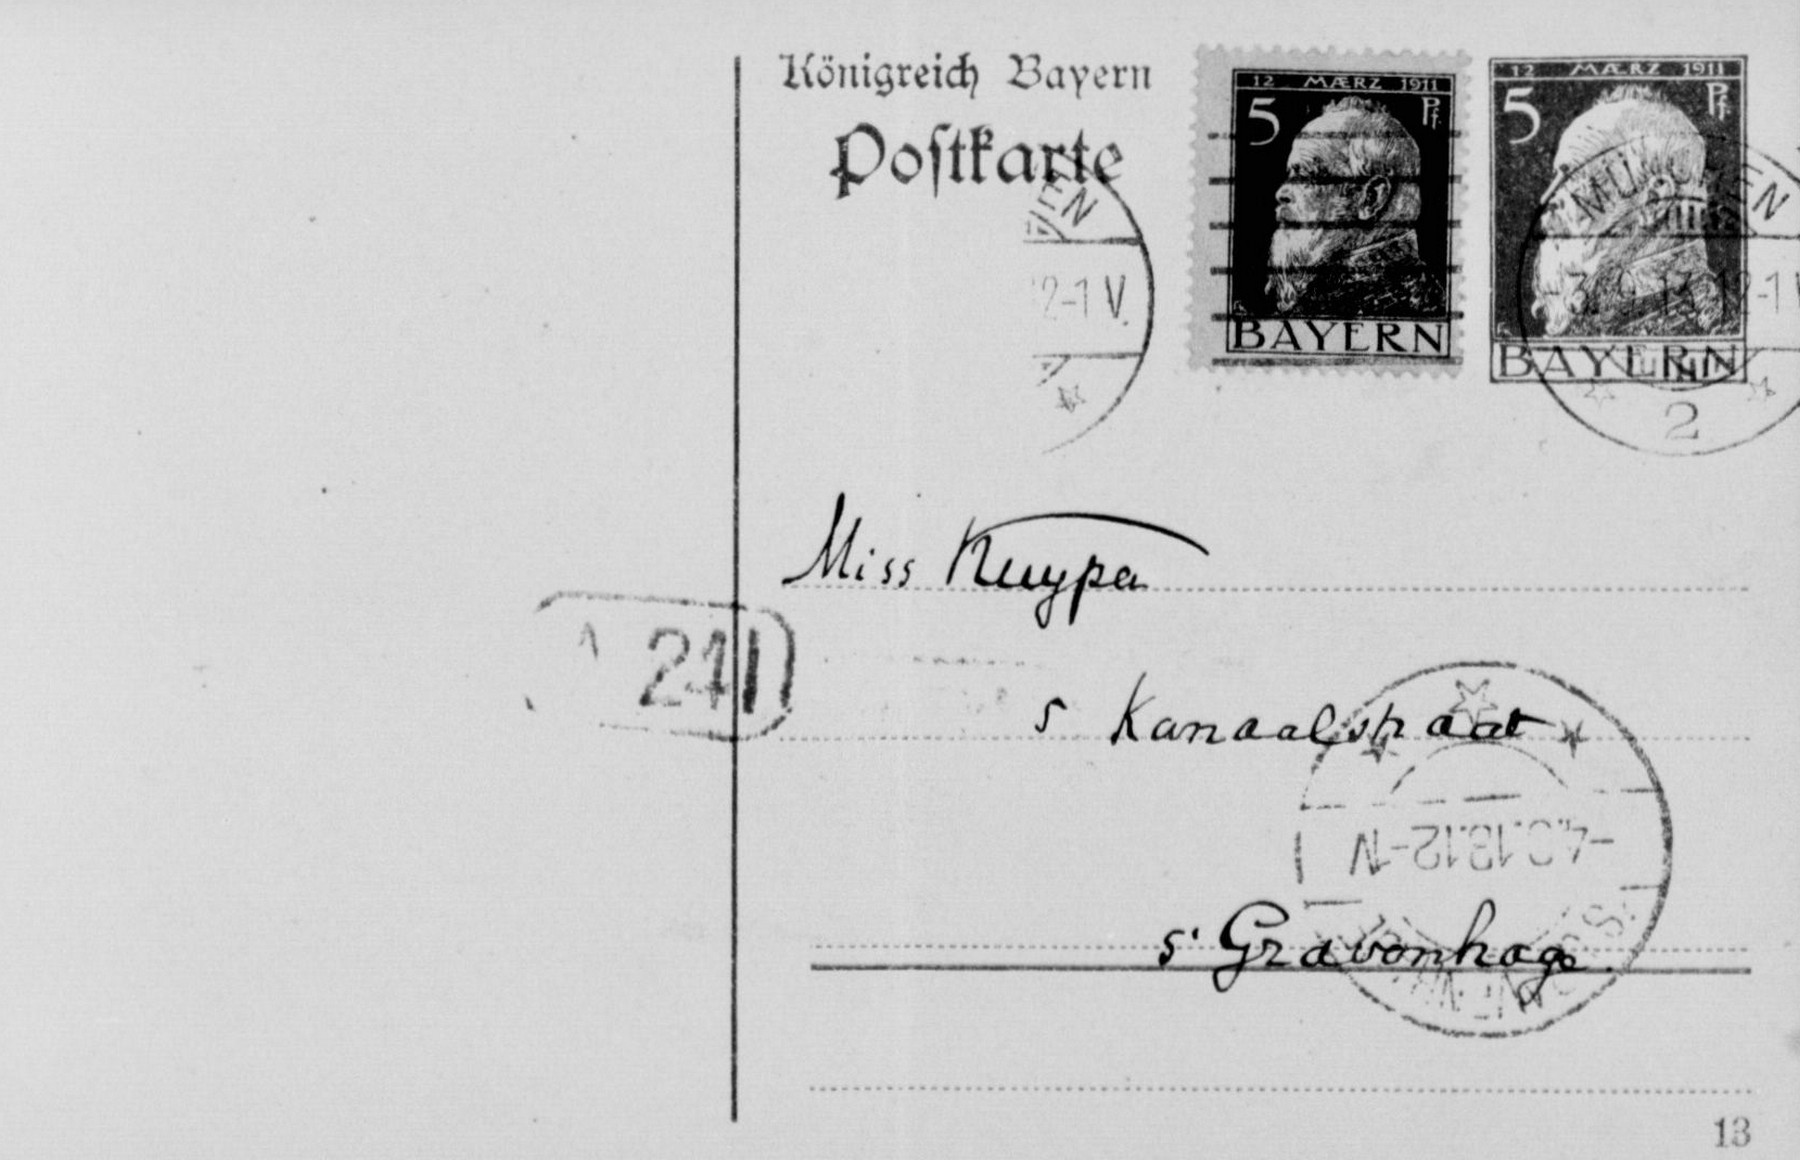 Königreich Bayern
Postkarte
12 MÆRZ 1911
5 Pf.
BAYERN
12 MÆRZ 1911
5 Pf.
BAYERN
2-1 V.
MÜNCHEN
3.9.13. 12-1 V
2
Miss Kuyper
241
5 Kanaalstraat
-4.9.13.12-1V
s' Gravenhage.
13